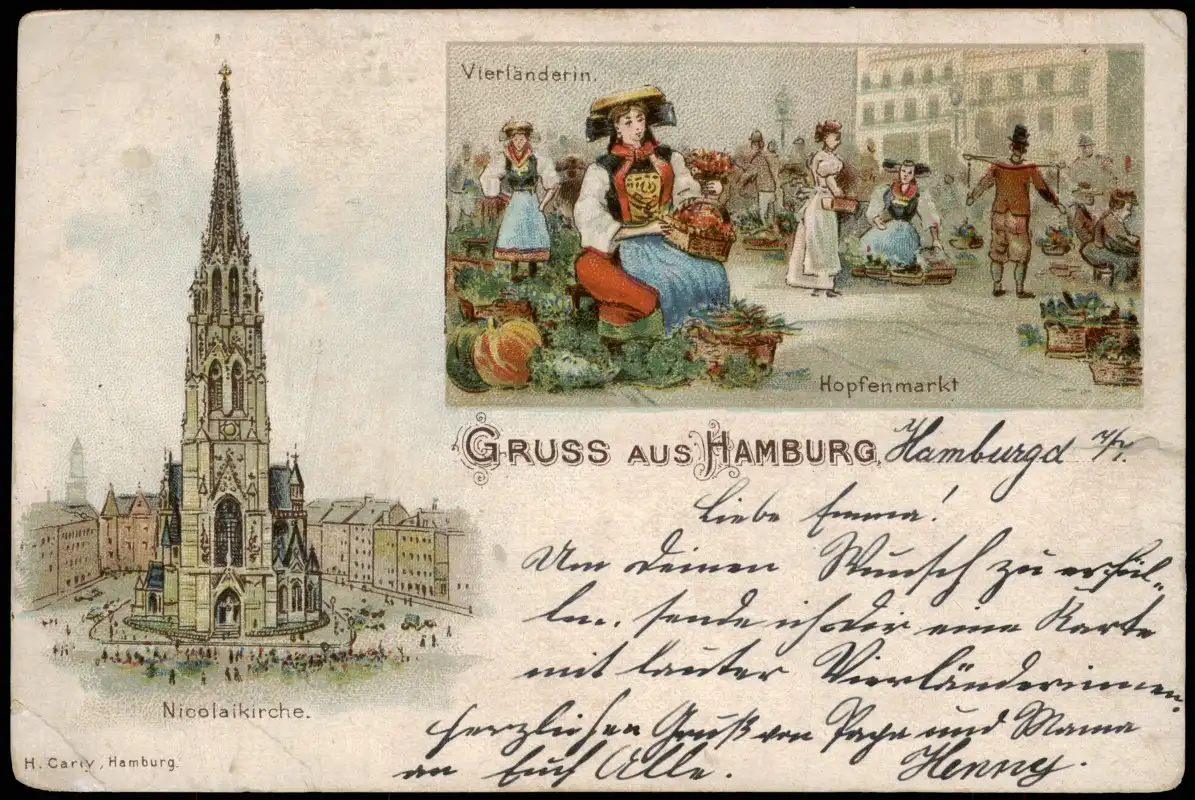 Vierländerin.
Hopfenmarkt
GRUSS AUS HAMBURG.
Hamburg d
Liebe Emma!
Um Deinen Wunsch zu erfül-
len, sende ich Dir eine Karte
mit lauter Vierländerinnen.
Herzlichen Gruß von Papa und Mama
an Euch Alle. Henny.
Nicolaikirche.
H. Carly, Hamburg.